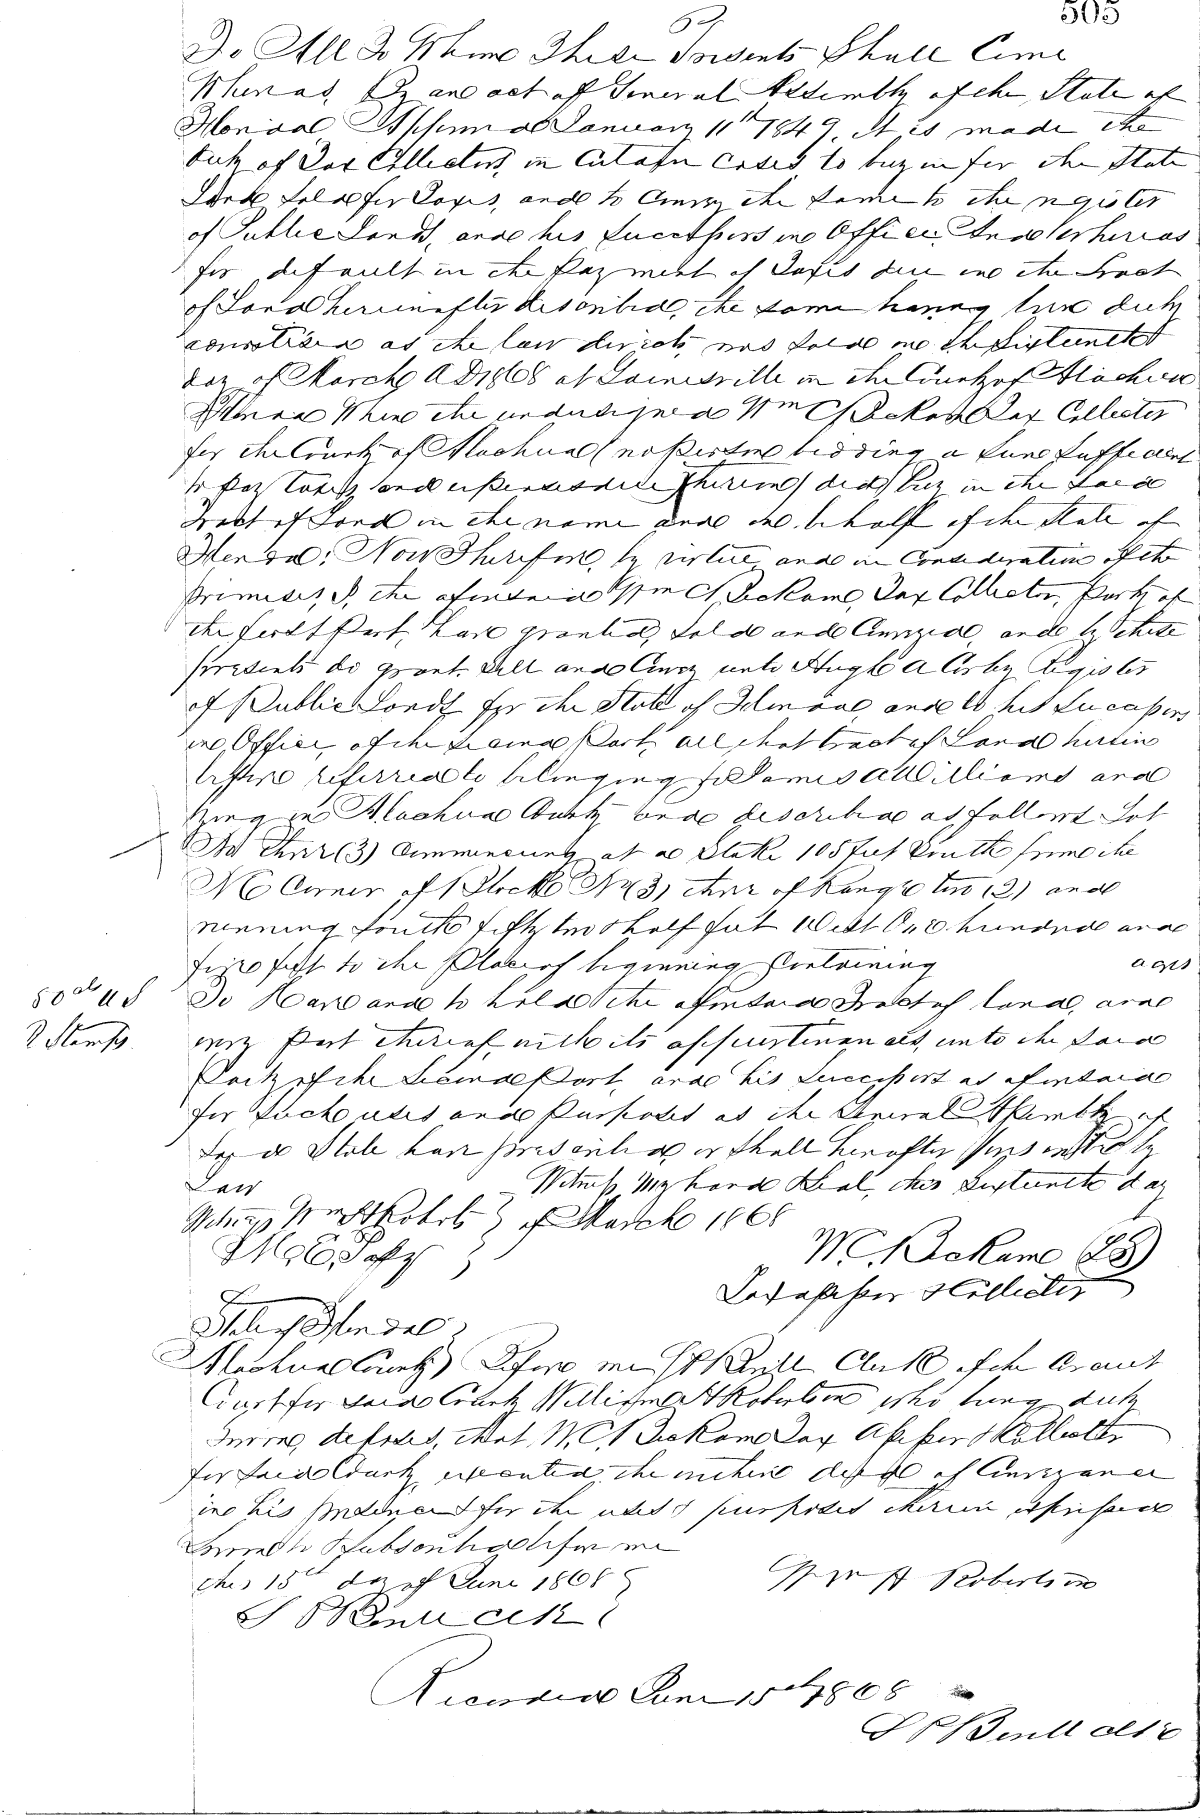 505
To All To Whom These Presents Shall Come
Whereas, By an act of General Assembly of the State of
Florida Approved January 11th 1849, It is made the
duty of Tax Collectors, in Certain Cases, to buy in for the State
Land sold for Taxes, and to Convey the same to the register
of Public Lands, and his Successors in Office, And Whereas
for default in the Payment of Taxes due on the Tract
of Land hereinafter described, the same having been duly
advertised as the law directs, was sold on the Sixteenth
day of March A D 1868 at Gainesville in the County of Alachua
Florida Where the undersigned Wm C Beckam Tax Collector
for the County of Alachua (no Person bidding a Sum Sufficient
to Pay Taxes and expenses due thereon) did Buy in the Said
Tract of Land in the name and on behalf of the State of
Florida: Now Therefore, by virtue and in Consideration of the
Premises, I, the aforesaid Wm C Beckam, Tax Collector, Party of
the first Part, have granted, Sold and Conveyed, and by these
presents do grant, Sell and Convey unto Hugh A Corley Register
of Public Lands for the State of Florida and to his Successors
in Office, of the second Part, all that tract of Land herein
before referred to belonging to James A Williams and
lying in Alachua County and described as follows Lot
No three (3) Commencing at a Stake 105 feet South from the
NE Corner of Block No (3) three of Range two (2) and
running South fifty two & half feet West One hundred and
five feet to the Place of beginning Containing acres
To Have and to hold the aforesaid Tract of land, and
every Part thereof, with its appurtenances, unto the Said
Party of the Second Part, and his Successors as aforesaid
for Such uses and Purposes as the General Assembly of
Said State have prescribed, or Shall hereafter prescribe by
Law Witness My hand & Seal, this Sixteenth day
Witness Wm H Roberts of March 1868
50 cts U S
R Stamps
W C. Beckam (LS)
Tax assessor & Collector
State of Florida
Alachua County Before me Clerk of the Circuit
Court for said County William H Robertson who being duly
Sworn, deposes, that, W. C. Beckam Tax Assessor & Collector
for Said County, executed the within deed of Conveyance
in his presence & for the uses & purposes therein expressed
Sworn to & Subscribed before me
this 15th day of June 1868
Wm H Robertson
Clk
Recorded June 15th 1868
Clk